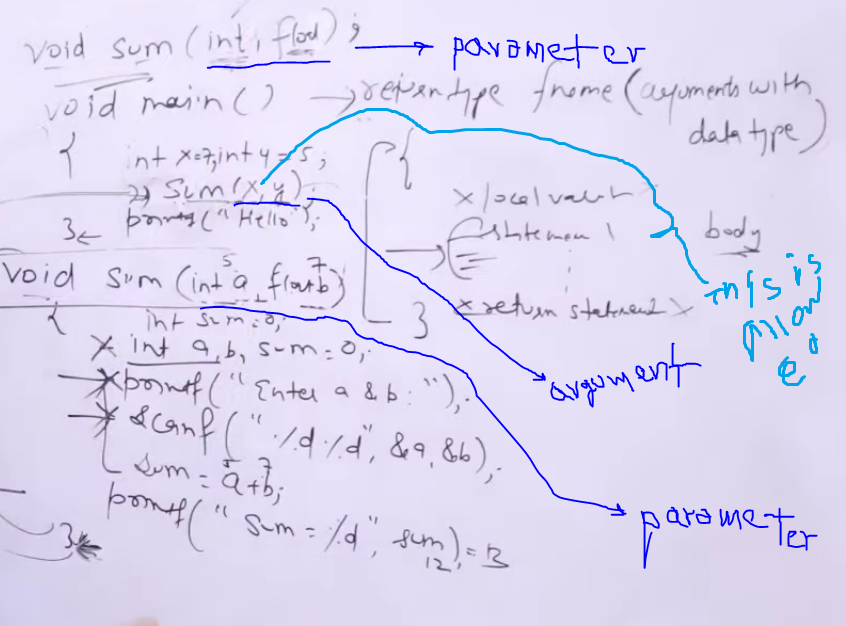 void sum (int, float); → parameter
void main() → return type fname (arguments with
data type)
{ {
int x=7, int y=5;
sum(x,y);
printf("Hello");
}
x local variable x
statement 1
body
x return statement x
}
This is
argument
5 7
void sum (int a, float b)
{
int sum=0;
x int a, b, sum=0;
x printf("Enter a & b:");
x scanf("%d %d", &a, &b);
5 7
sum = a+b;
printf("sum=%d", sum);
12
}
parameter